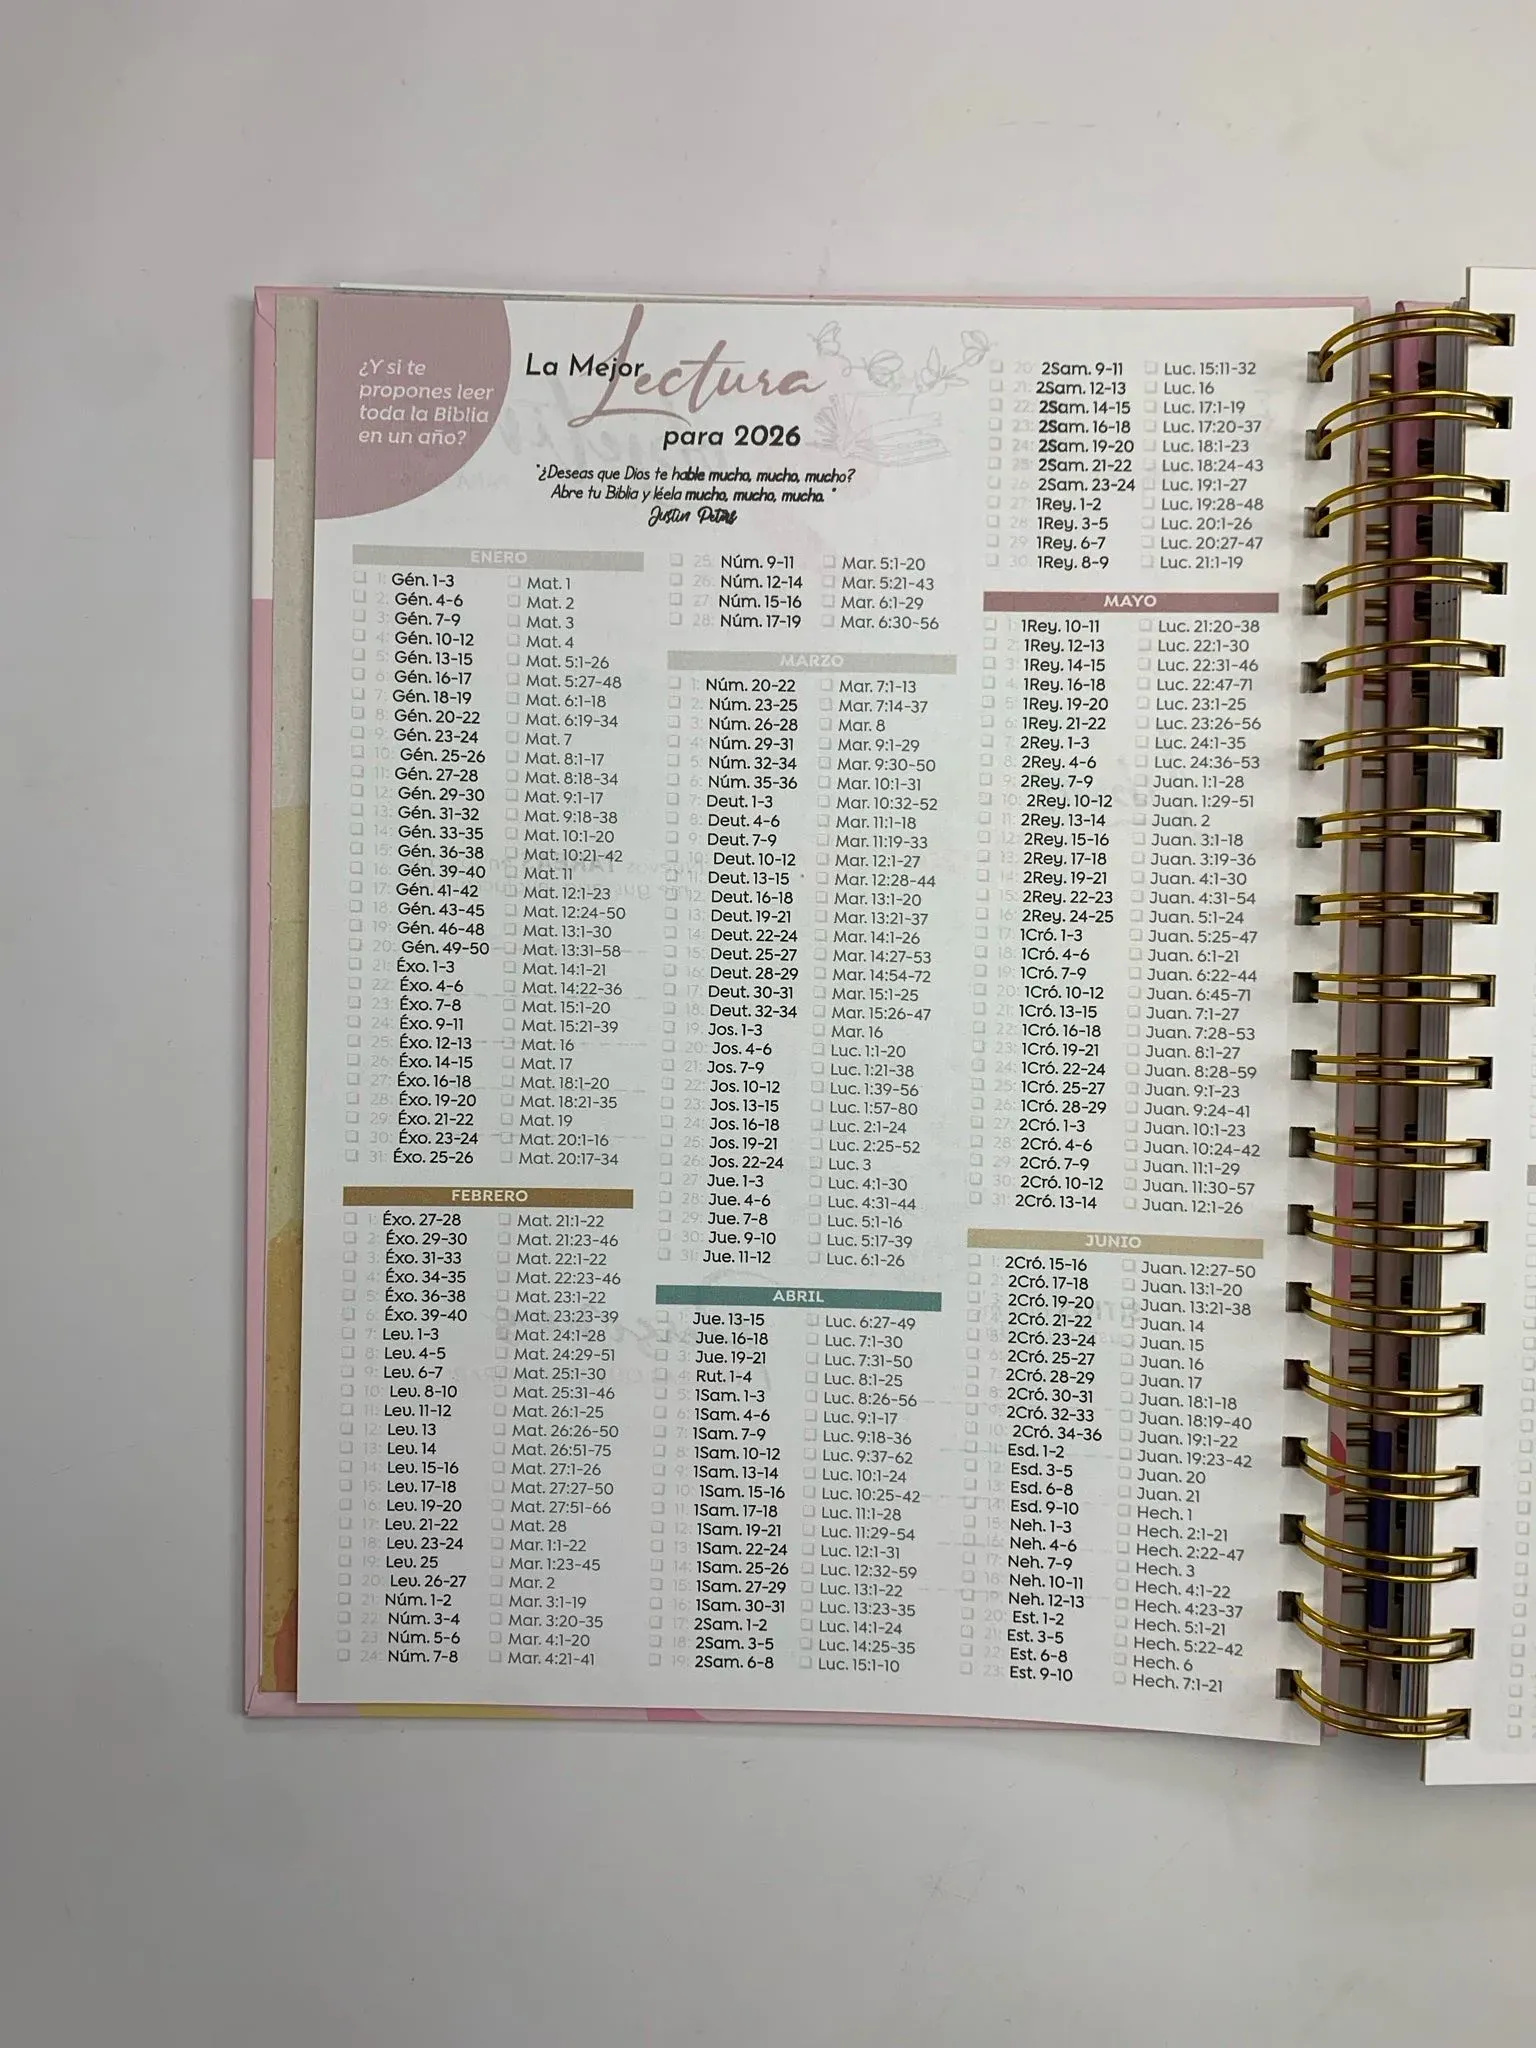 ¿Y si te
propones leer
toda la Biblia
en un año?
La Mejor Lectura
para 2026
"¿Deseas que Dios te hable mucho, mucho, mucho?
Abre tu Biblia y léela mucho, mucho, mucha. "
Justin Peters
ENERO
1: Gén. 1-3 Mat. 1
2: Gén. 4-6 Mat. 2
3: Gén. 7-9 Mat. 3
4: Gén. 10-12 Mat. 4
5: Gén. 13-15 Mat. 5:1-26
6: Gén. 16-17 Mat. 5:27-48
7: Gén. 18-19 Mat. 6:1-18
8: Gén. 20-22 Mat. 6:19-34
9: Gén. 23-24 Mat. 7
10: Gén. 25-26 Mat. 8:1-17
11: Gén. 27-28 Mat. 8:18-34
12: Gén. 29-30 Mat. 9:1-17
13: Gén. 31-32 Mat. 9:18-38
14: Gén. 33-35 Mat. 10:1-20
15: Gén. 36-38 Mat. 10:21-42
16: Gén. 39-40 Mat. 11
17: Gén. 41-42 Mat. 12:1-23
18: Gén. 43-45 Mat. 12:24-50
19: Gén. 46-48 Mat. 13:1-30
20: Gén. 49-50 Mat. 13:31-58
21: Éxo. 1-3 Mat. 14:1-21
22: Éxo. 4-6 Mat. 14:22-36
23: Éxo. 7-8 Mat. 15:1-20
24: Éxo. 9-11 Mat. 15:21-39
25: Éxo. 12-13 Mat. 16
26: Éxo. 14-15 Mat. 17
27: Éxo. 16-18 Mat. 18:1-20
28: Éxo. 19-20 Mat. 18:21-35
29: Éxo. 21-22 Mat. 19
30: Éxo. 23-24 Mat. 20:1-16
31: Éxo. 25-26 Mat. 20:17-34
FEBRERO
1: Éxo. 27-28 Mat. 21:1-22
2: Éxo. 29-30 Mat. 21:23-46
3: Éxo. 31-33 Mat. 22:1-22
4: Éxo. 34-35 Mat. 22:23-46
5: Éxo. 36-38 Mat. 23:1-22
6: Éxo. 39-40 Mat. 23:23-39
7: Lev. 1-3 Mat. 24:1-28
8: Lev. 4-5 Mat. 24:29-51
9: Lev. 6-7 Mat. 25:1-30
10: Lev. 8-10 Mat. 25:31-46
11: Lev. 11-12 Mat. 26:1-25
12: Lev. 13 Mat. 26:26-50
13: Lev. 14 Mat. 26:51-75
14: Lev. 15-16 Mat. 27:1-26
15: Lev. 17-18 Mat. 27:27-50
16: Lev. 19-20 Mat. 27:51-66
17: Lev. 21-22 Mat. 28
18: Lev. 23-24 Mar. 1:1-22
19: Lev. 25 Mar. 1:23-45
20: Lev. 26-27 Mar. 2
21: Núm. 1-2 Mar. 3:1-19
22: Núm. 3-4 Mar. 3:20-35
23: Núm. 5-6 Mar. 4:1-20
24: Núm. 7-8 Mar. 4:21-41
25: Núm. 9-11 Mar. 5:1-20
26: Núm. 12-14 Mar. 5:21-43
27: Núm. 15-16 Mar. 6:1-29
28: Núm. 17-19 Mar. 6:30-56
MARZO
1: Núm. 20-22 Mar. 7:1-13
2: Núm. 23-25 Mar. 7:14-37
3: Núm. 26-28 Mar. 8
4: Núm. 29-31 Mar. 9:1-29
5: Núm. 32-34 Mar. 9:30-50
6: Núm. 35-36 Mar. 10:1-31
7: Deut. 1-3 Mar. 10:32-52
8: Deut. 4-6 Mar. 11:1-18
9: Deut. 7-9 Mar. 11:19-33
10: Deut. 10-12 Mar. 12:1-27
11: Deut. 13-15 Mar. 12:28-44
12: Deut. 16-18 Mar. 13:1-20
13: Deut. 19-21 Mar. 13:21-37
14: Deut. 22-24 Mar. 14:1-26
15: Deut. 25-27 Mar. 14:27-53
16: Deut. 28-29 Mar. 14:54-72
17: Deut. 30-31 Mar. 15:1-25
18: Deut. 32-34 Mar. 15:26-47
19: Jos. 1-3 Mar. 16
20: Jos. 4-6 Luc. 1:1-20
21: Jos. 7-9 Luc. 1:21-38
22: Jos. 10-12 Luc. 1:39-56
23: Jos. 13-15 Luc. 1:57-80
24: Jos. 16-18 Luc. 2:1-24
25: Jos. 19-21 Luc. 2:25-52
26: Jos. 22-24 Luc. 3
27: Jue. 1-3 Luc. 4:1-30
28: Jue. 4-6 Luc. 4:31-44
29: Jue. 7-8 Luc. 5:1-16
30: Jue. 9-10 Luc. 5:17-39
31: Jue. 11-12 Luc. 6:1-26
ABRIL
1: Jue. 13-15 Luc. 6:27-49
2: Jue. 16-18 Luc. 7:1-30
3: Jue. 19-21 Luc. 7:31-50
4: Rut. 1-4 Luc. 8:1-25
5: 1Sam. 1-3 Luc. 8:26-56
6: 1Sam. 4-6 Luc. 9:1-17
7: 1Sam. 7-9 Luc. 9:18-36
8: 1Sam. 10-12 Luc. 9:37-62
9: 1Sam. 13-14 Luc. 10:1-24
10: 1Sam. 15-16 Luc. 10:25-42
11: 1Sam. 17-18 Luc. 11:1-28
12: 1Sam. 19-21 Luc. 11:29-54
13: 1Sam. 22-24 Luc. 12:1-31
14: 1Sam. 25-26 Luc. 12:32-59
15: 1Sam. 27-29 Luc. 13:1-22
16: 1Sam. 30-31 Luc. 13:23-35
17: 2Sam. 1-2 Luc. 14:1-24
18: 2Sam. 3-5 Luc. 14:25-35
19: 2Sam. 6-8 Luc. 15:1-10
20: 2Sam. 9-11 Luc. 15:11-32
21: 2Sam. 12-13 Luc. 16
22: 2Sam. 14-15 Luc. 17:1-19
23: 2Sam. 16-18 Luc. 17:20-37
24: 2Sam. 19-20 Luc. 18:1-23
25: 2Sam. 21-22 Luc. 18:24-43
26: 2Sam. 23-24 Luc. 19:1-27
27: 1Rey. 1-2 Luc. 19:28-48
28: 1Rey. 3-5 Luc. 20:1-26
29: 1Rey. 6-7 Luc. 20:27-47
30: 1Rey. 8-9 Luc. 21:1-19
MAYO
1: 1Rey. 10-11 Luc. 21:20-38
2: 1Rey. 12-13 Luc. 22:1-30
3: 1Rey. 14-15 Luc. 22:31-46
4: 1Rey. 16-18 Luc. 22:47-71
5: 1Rey. 19-20 Luc. 23:1-25
6: 1Rey. 21-22 Luc. 23:26-56
7: 2Rey. 1-3 Luc. 24:1-35
8: 2Rey. 4-6 Luc. 24:36-53
9: 2Rey. 7-9 Juan. 1:1-28
10: 2Rey. 10-12 Juan. 1:29-51
11: 2Rey. 13-14 Juan. 2
12: 2Rey. 15-16 Juan. 3:1-18
13: 2Rey. 17-18 Juan. 3:19-36
14: 2Rey. 19-21 Juan. 4:1-30
15: 2Rey. 22-23 Juan. 4:31-54
16: 2Rey. 24-25 Juan. 5:1-24
17: 1Cró. 1-3 Juan. 5:25-47
18: 1Cró. 4-6 Juan. 6:1-21
19: 1Cró. 7-9 Juan. 6:22-44
20: 1Cró. 10-12 Juan. 6:45-71
21: 1Cró. 13-15 Juan. 7:1-27
22: 1Cró. 16-18 Juan. 7:28-53
23: 1Cró. 19-21 Juan. 8:1-27
24: 1Cró. 22-24 Juan. 8:28-59
25: 1Cró. 25-27 Juan. 9:1-23
26: 1Cró. 28-29 Juan. 9:24-41
27: 2Cró. 1-3 Juan. 10:1-23
28: 2Cró. 4-6 Juan. 10:24-42
29: 2Cró. 7-9 Juan. 11:1-29
30: 2Cró. 10-12 Juan. 11:30-57
31: 2Cró. 13-14 Juan. 12:1-26
JUNIO
1: 2Cró. 15-16 Juan. 12:27-50
2: 2Cró. 17-18 Juan. 13:1-20
3: 2Cró. 19-20 Juan. 13:21-38
4: 2Cró. 21-22 Juan. 14
5: 2Cró. 23-24 Juan. 15
6: 2Cró. 25-27 Juan. 16
7: 2Cró. 28-29 Juan. 17
8: 2Cró. 30-31 Juan. 18:1-18
9: 2Cró. 32-33 Juan. 18:19-40
10: 2Cró. 34-36 Juan. 19:1-22
11: Esd. 1-2 Juan. 19:23-42
12: Esd. 3-5 Juan. 20
13: Esd. 6-8 Juan. 21
14: Esd. 9-10 Hech. 1
15: Neh. 1-3 Hech. 2:1-21
16: Neh. 4-6 Hech. 2:22-47
17: Neh. 7-9 Hech. 3
18: Neh. 10-11 Hech. 4:1-22
19: Neh. 12-13 Hech. 4:23-37
20: Est. 1-2 Hech. 5:1-21
21: Est. 3-5 Hech. 5:22-42
22: Est. 6-8 Hech. 6
23: Est. 9-10 Hech. 7:1-21